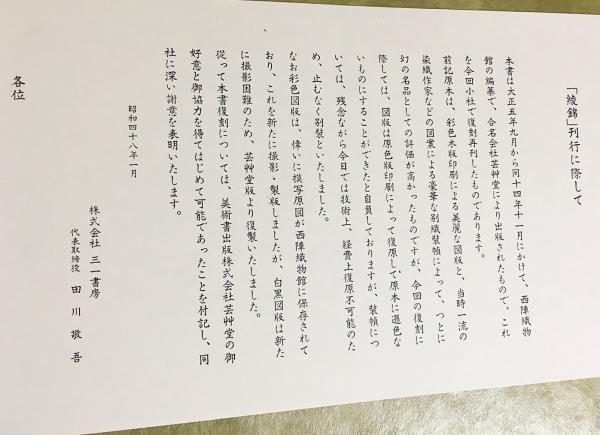 「綾錦」刊行に際して
本書は大正五年九月から同十四年十一月にかけて、西陣織物
館の編纂で、合名会社芸艸堂により出版されたもので、これ
を今回小社で復刻再刊したものであります。
前記原本は、彩色木版印刷による美麗な図版と、当時一流の
染織作家などの図案による豪華な別織装幀によって、つとに
幻の名品としての評価が高かったものですが、今回の復刻に
際しては、図版は原色版印刷によって復原して原本に遜色な
いものにすることができたと自負しておりますが、装幀につ
いては、残念ながら今日では技術上、経費上復原不可能のた
め、止むなく別裝といたしました。
なお彩色図版は、偉いに模写原図が西陣織物館に保存されて
おり、これを新たに撮影・製版しましたが、白黒図版は新た
に撮影困難のため、芸艸堂版より復製いたしました。
従って本書復刻については、美術書出版株式会社芸艸堂の御
好意と御協力を得てはじめて可能であったことを付記し、同
社に深い謝意を表明いたします。
昭和四十八年一月
株式会社 三一書房
代表取締役 田川敬吾
各位